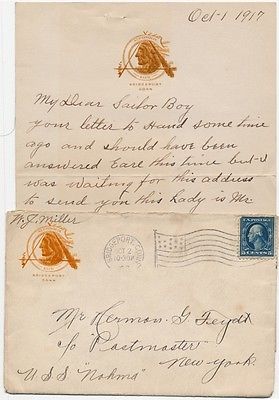 Oct-1 1917
BRIDGEPORT
CONN
My Dear Sailor Boy
your letter to Hand some time
ago and should have been
answered Eare this time but I
was waiting for this address
to send you this Lady is Mr.
W. J. Miller
BRIDGEPORT
CONN
BRIDGEPORT, CONN.
OCT 2
1917
5
5
Mr Herman G. Feydt
c/o Postmaster
New-York.
U S S "Nokma"